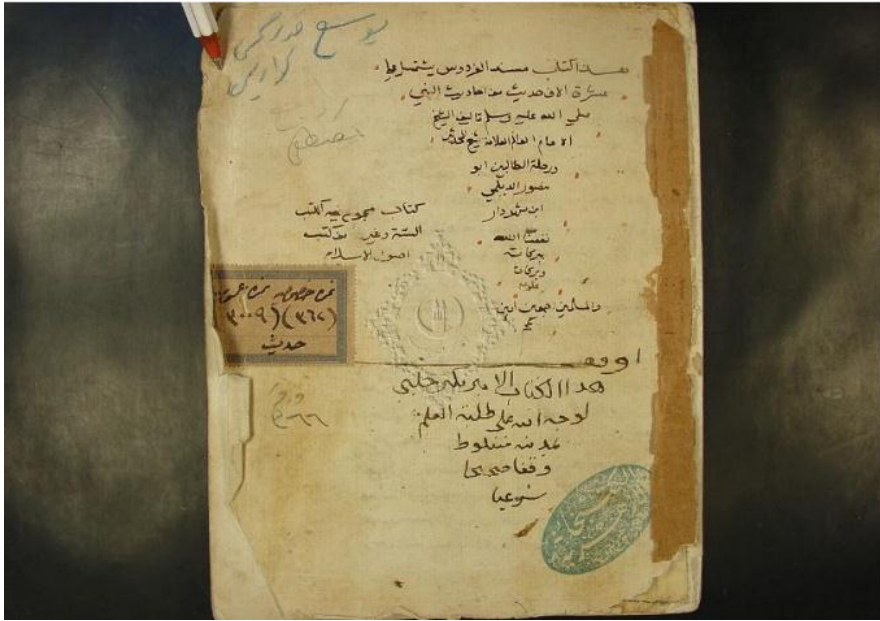 هذا كتاب مسند الفردوس يشتمل على
عشرة الاف حديث من احاديث النبي
صلى الله عليه وسلم تاليف الشيخ
الامام العالم العلامة شيخ المحدثين
ورحلة الطالبين ابو
منصور الديلمي
ابن شهردار
نفعنا الله
ببركاته
وبركات
علومه
والمسلمين اجمعين امين
كتاب مجموع فيه الكتب
الستة وغير من كتب
اصول الاسلام
نمرة خصوصية نمرة عمومية
(٣٦٢) (٣٠٠٩)
حديث
اوقف
هذا الكتاب الامير جلبي
لوجه الله على طلبة العلم
بمدينة منفلوط
وقفا صحيحا
شرعيا